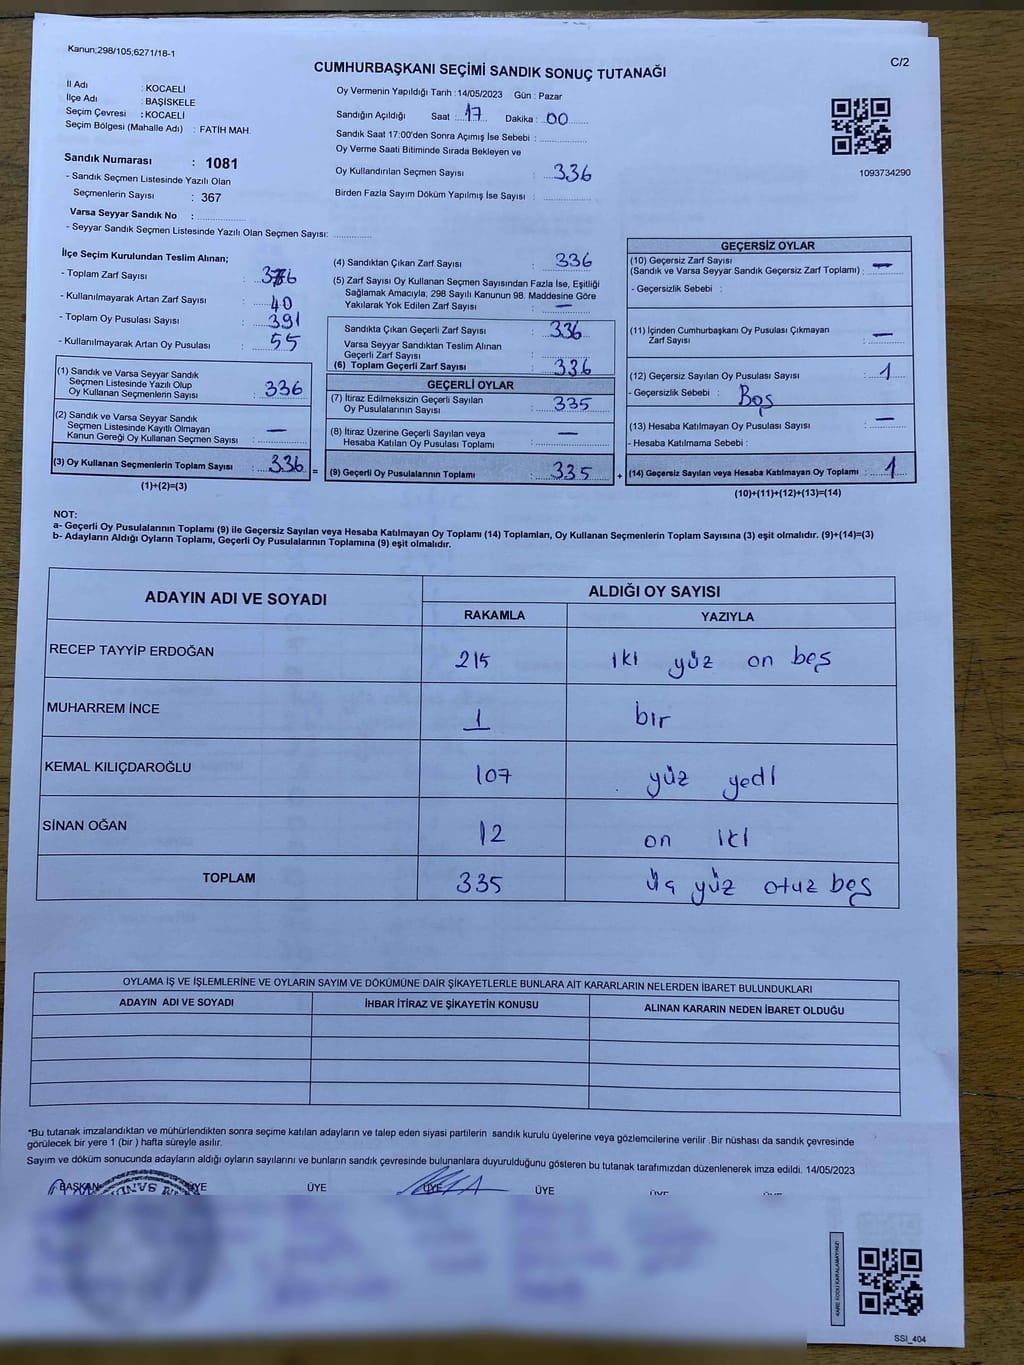 Kanun;298/105,6271/18-1
C/2
CUMHURBAŞKANI SEÇİMİ SANDIK SONUÇ TUTANAĞI
İl Adı : KOCAELİ
İlçe Adı : BAŞİSKELE
Seçim Çevresi : KOCAELİ
Seçim Bölgesi (Mahalle Adı) : FATİH MAH.
Oy Vermenin Yapıldığı Tarih : 14/05/2023 Gün : Pazar
Sandığın Açıldığı Saat 17 Dakika : 00
Sandık Saat 17:00'den Sonra Açımış İse Sebebi :
Oy Verme Saati Bitiminde Sırada Bekleyen ve
Oy Kullandırılan Seçmen Sayısı : 336
Birden Fazla Sayım Döküm Yapılmış İse Sayısı :
1093734290
Sandık Numarası : 1081
- Sandık Seçmen Listesinde Yazılı Olan
Seçmenlerin Sayısı : 367
Varsa Seyyar Sandık No :
- Seyyar Sandık Seçmen Listesinde Yazılı Olan Seçmen Sayısı:
İlçe Seçim Kurulundan Teslim Alınan;
- Toplam Zarf Sayısı : 376
- Kullanılmayarak Artan Zarf Sayısı : 40
- Toplam Oy Pusulası Sayısı : 391
- Kullanılmayarak Artan Oy Pusulası : 55
(1) Sandık ve Varsa Seyyar Sandık
Seçmen Listesinde Yazılı Olup
Oy Kullanan Seçmenlerin Sayısı : 336
(2) Sandık ve Varsa Seyyar Sandık
Seçmen Listesinde Kayıtlı Olmayan
Kanun Gereği Oy Kullanan Seçmen Sayısı : —
(3) Oy Kullanan Seçmenlerin Toplam Sayısı : 336 =
(1)+(2)=(3)
(4) Sandıktan Çıkan Zarf Sayısı : 336
(5) Zarf Sayısı Oy Kullanan Seçmen Sayısından Fazla İse, Eşitliği
Sağlamak Amacıyla; 298 Sayılı Kanunun 98. Maddesine Göre
Yakılarak Yok Edilen Zarf Sayısı : —
Sandıkta Çıkan Geçerli Zarf Sayısı : 336
Varsa Seyyar Sandıktan Teslim Alınan
Geçerli Zarf Sayısı :
(6) Toplam Geçerli Zarf Sayısı : 336
GEÇERLİ OYLAR
(7) İtiraz Edilmeksizin Geçerli Sayılan
Oy Pusulalarının Sayısı : 335
(8) İtiraz Üzerine Geçerli Sayılan veya
Hesaba Katılan Oy Pusulası Toplamı : —
(9) Geçerli Oy Pusulalarının Toplamı : 335 +
GEÇERSİZ OYLAR
(10) Geçersiz Zarf Sayısı
(Sandık ve Varsa Seyyar Sandık Geçersiz Zarf Toplamı) : —
- Geçersizlik Sebebi :
(11) İçinden Cumhurbaşkanı Oy Pusulası Çıkmayan
Zarf Sayısı : —
(12) Geçersiz Sayılan Oy Pusulası Sayısı : 1
- Geçersizlik Sebebi : Boş
(13) Hesaba Katılmayan Oy Pusulası Sayısı : —
- Hesaba Katılmama Sebebi :
(14) Geçersiz Sayılan veya Hesaba Katılmayan Oy Toplamı : 1
(10)+(11)+(12)+(13)=(14)
NOT:
a- Geçerli Oy Pusulalarının Toplamı (9) ile Geçersiz Sayılan veya Hesaba Katılmayan Oy Toplamı (14) Toplamları, Oy Kullanan Seçmenlerin Toplam Sayısına (3) eşit olmalıdır. (9)+(14)=(3)
b- Adayların Aldığı Oyların Toplamı, Geçerli Oy Pusulalarının Toplamına (9) eşit olmalıdır.
ADAYIN ADI VE SOYADI
ALDIĞI OY SAYISI
RAKAMLA YAZIYLA
RECEP TAYYİP ERDOĞAN 215 iki yüz on beş
MUHARREM İNCE 1 bir
KEMAL KILIÇDAROĞLU 107 yüz yedi
SİNAN OĞAN 12 on iki
TOPLAM 335 üç yüz otuz beş
OYLAMA İŞ VE İŞLEMLERİNE VE OYLARIN SAYIM VE DÖKÜMÜNE DAİR ŞİKAYETLERLE BUNLARA AİT KARARLARIN NELERDEN İBARET BULUNDUKLARI
ADAYIN ADI VE SOYADI İHBAR İTİRAZ VE ŞİKAYETİN KONUSU ALINAN KARARIN NEDEN İBARET OLDUĞU
*Bu tutanak imzalandıktan ve mühürlendikten sonra seçime katılan adayların ve talep eden siyasi partilerin sandık kurulu üyelerine veya gözlemcilerine verilir .Bir nüshası da sandık çevresinde
görülecek bir yere 1 (bir ) hafta süreyle asılır.
Sayım ve döküm sonucunda adayların aldığı oyların sayılarını ve bunların sandık çevresinde bulunanlara duyurulduğunu gösteren bu tutanak tarafımızdan düzenlenerek imza edildi. 14/05/2023
BAŞKAN ÜYE ÜYE ÜYE ÜYE ÜYE ÜYE
KARE KODU KARALAMAYINIZ!
SSİ_404